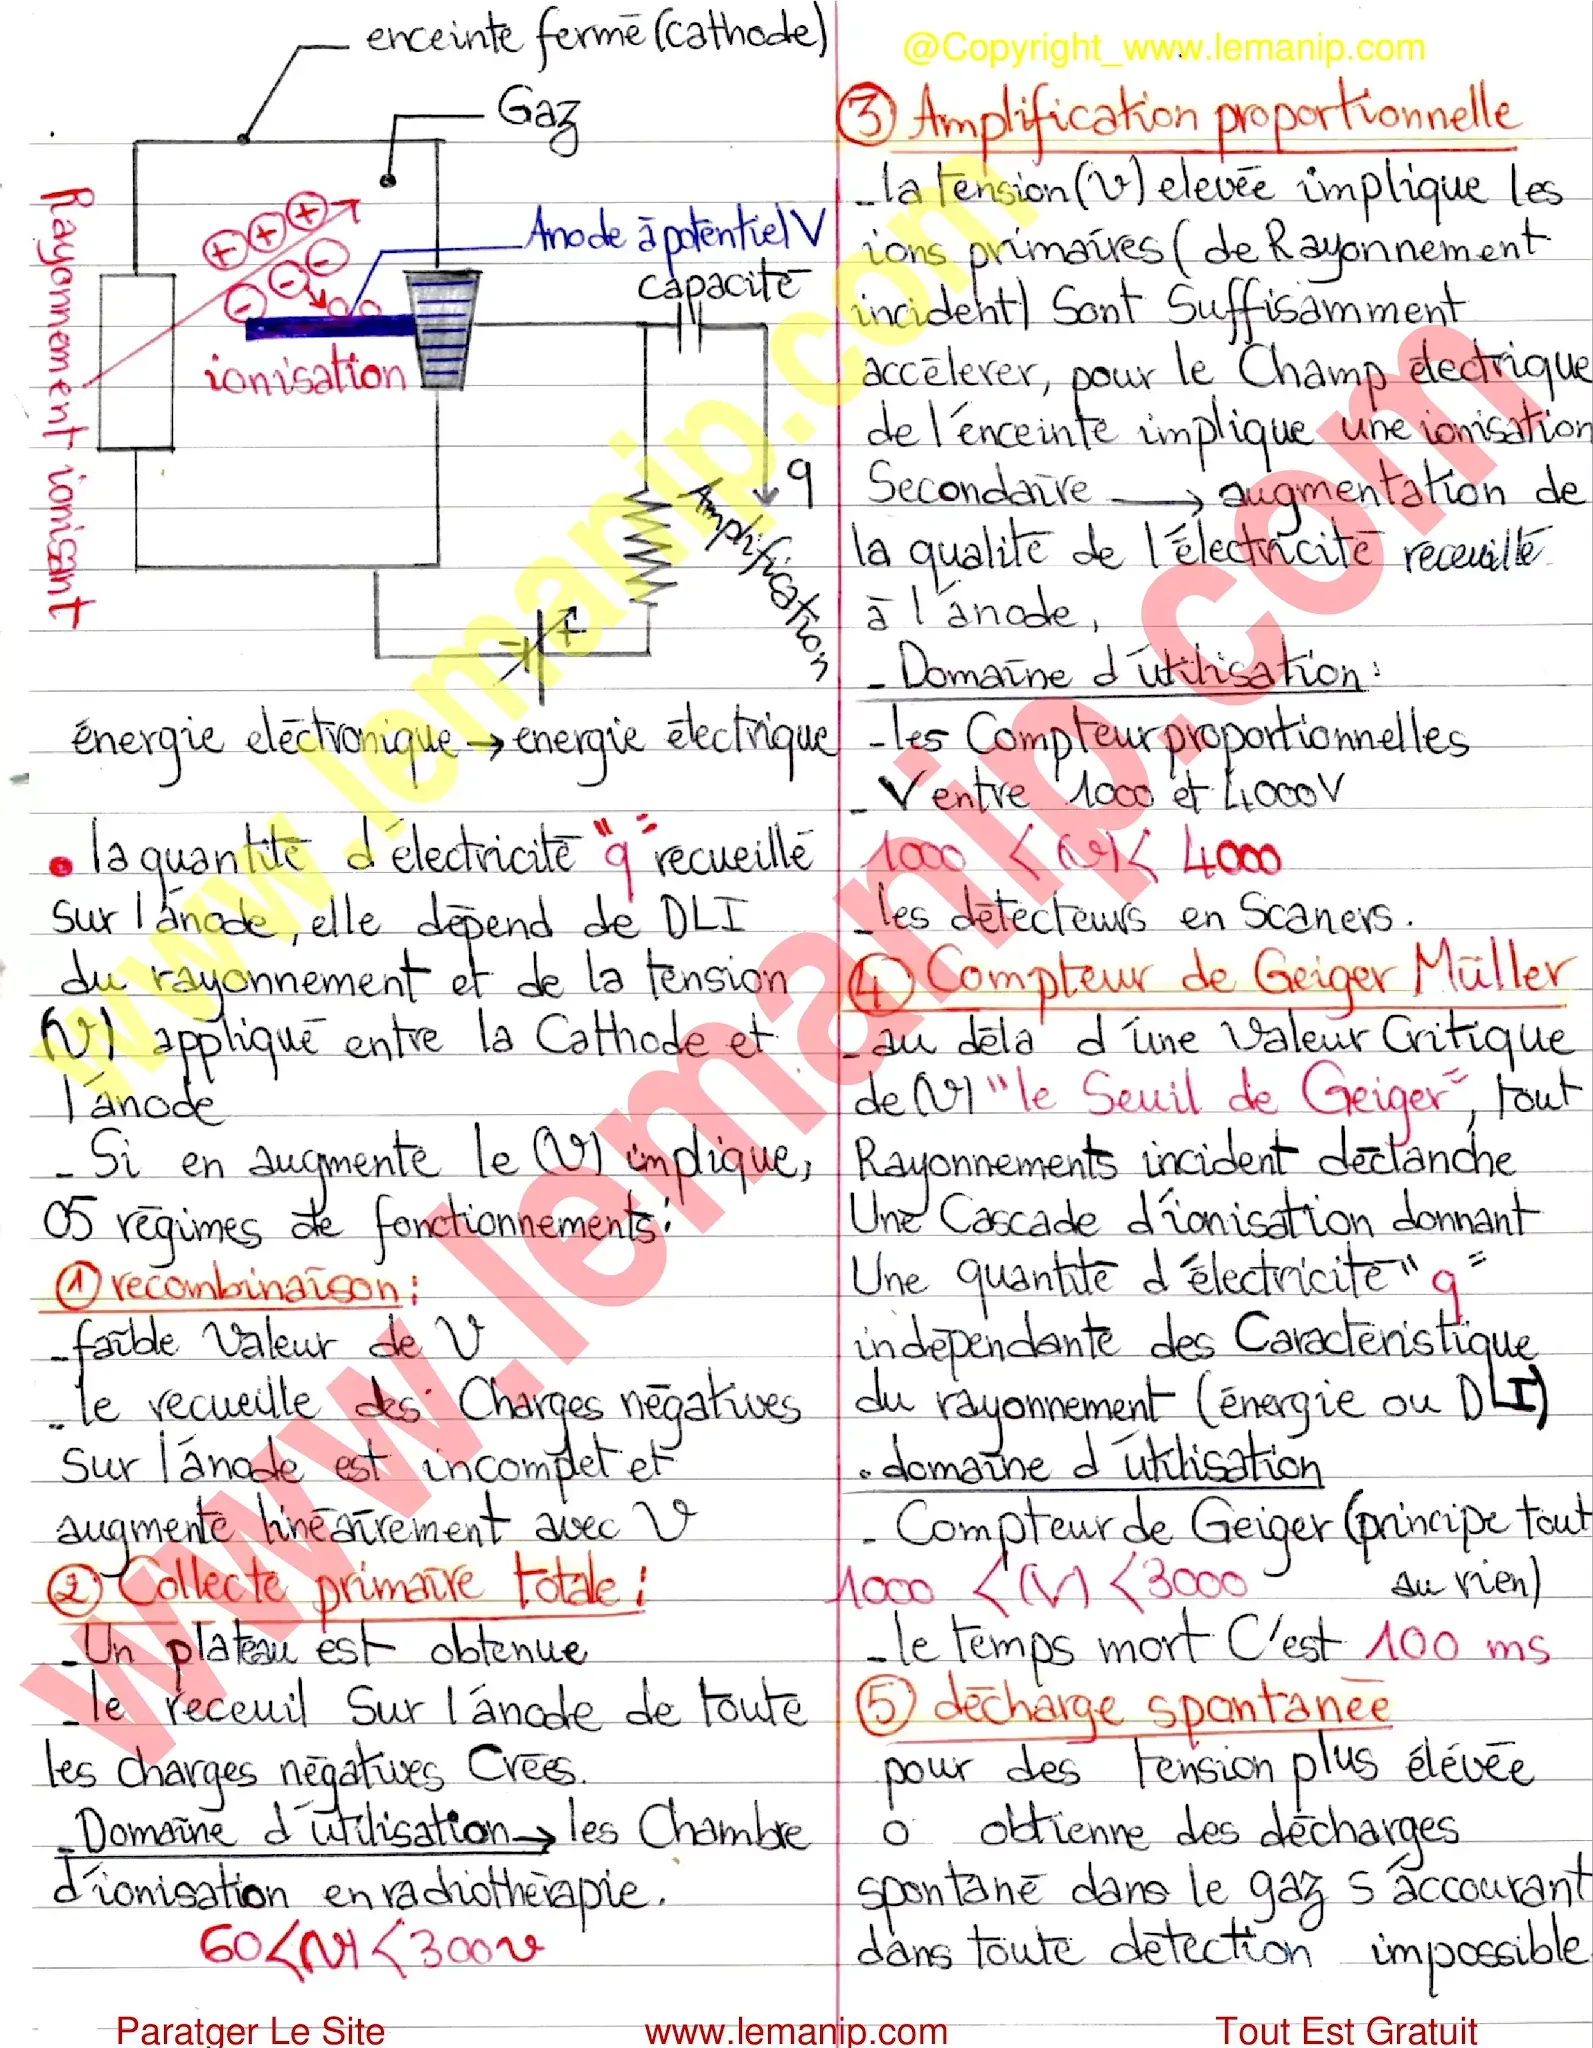 enceinte fermé (cathode)
Gaz
Anode à potentiel V
capacité
Rayonnement ionisant
ionisation
q
Amplification
énergie électronique → energie électrique
• la quantité d'électricité "q" recueillé
sur l'anode, elle dépend de DLI
du rayonnement et de la tension
(V) appliqué entre la Cathode et
l'anode
- Si en augmente le (V) implique,
05 régimes de fonctionnements:
① recombinaison:
- faible Valeur de V
- le recueille des Charges négatives
Sur l'anode est incomplet et
augmente linéairement avec V
② Collecte primaire totale:
- Un plateau est obtenue
- le receuil Sur l'anode de toute
les charges négatives Crées.
- Domaine d'utilisation → les Chambre
d'ionisation en radiothérapie.
60 < (V) < 300v
@Copyright_www.lemanip.com
③ Amplification proportionnelle
- la tension (V) elevée implique les
ions primaires (de Rayonnement
incident) Sont Suffisamment
accélerer, pour le Champ électrique
de l'enceinte implique une ionisation
Secondaire → augmentation de
la qualité de l'électricité receuillé
à l'anode,
- Domaine d'utilisation:
- les Compteur proportionnelles
- V entre 1000 et 4000V
1000 < (V) < 4000
- les détecteurs en Scaners.
④ Compteur de Geiger Müller
- au déla d'une Valeur Critique
de (V) "le Seuil de Geiger", tout
Rayonnements incident déclanche
Une Cascade d'ionisation donnant
Une quantité d'électricité "q"
indépendante des Caractéristique
du rayonnement (énergie ou DLI)
• domaine d'utilisation
- Compteur de Geiger (principe tout
1000 < (V) < 3000 au rien)
- le temps mort C'est 100 ms
⑤ décharge spontanée
pour des tension plus élévée
o obtienne des décharges
spontané dans le gaz s'accourant
dans toute détection impossible
www.lemanip.com
www.lemanip.com
Paratger Le Site www.lemanip.com Tout Est Gratuit